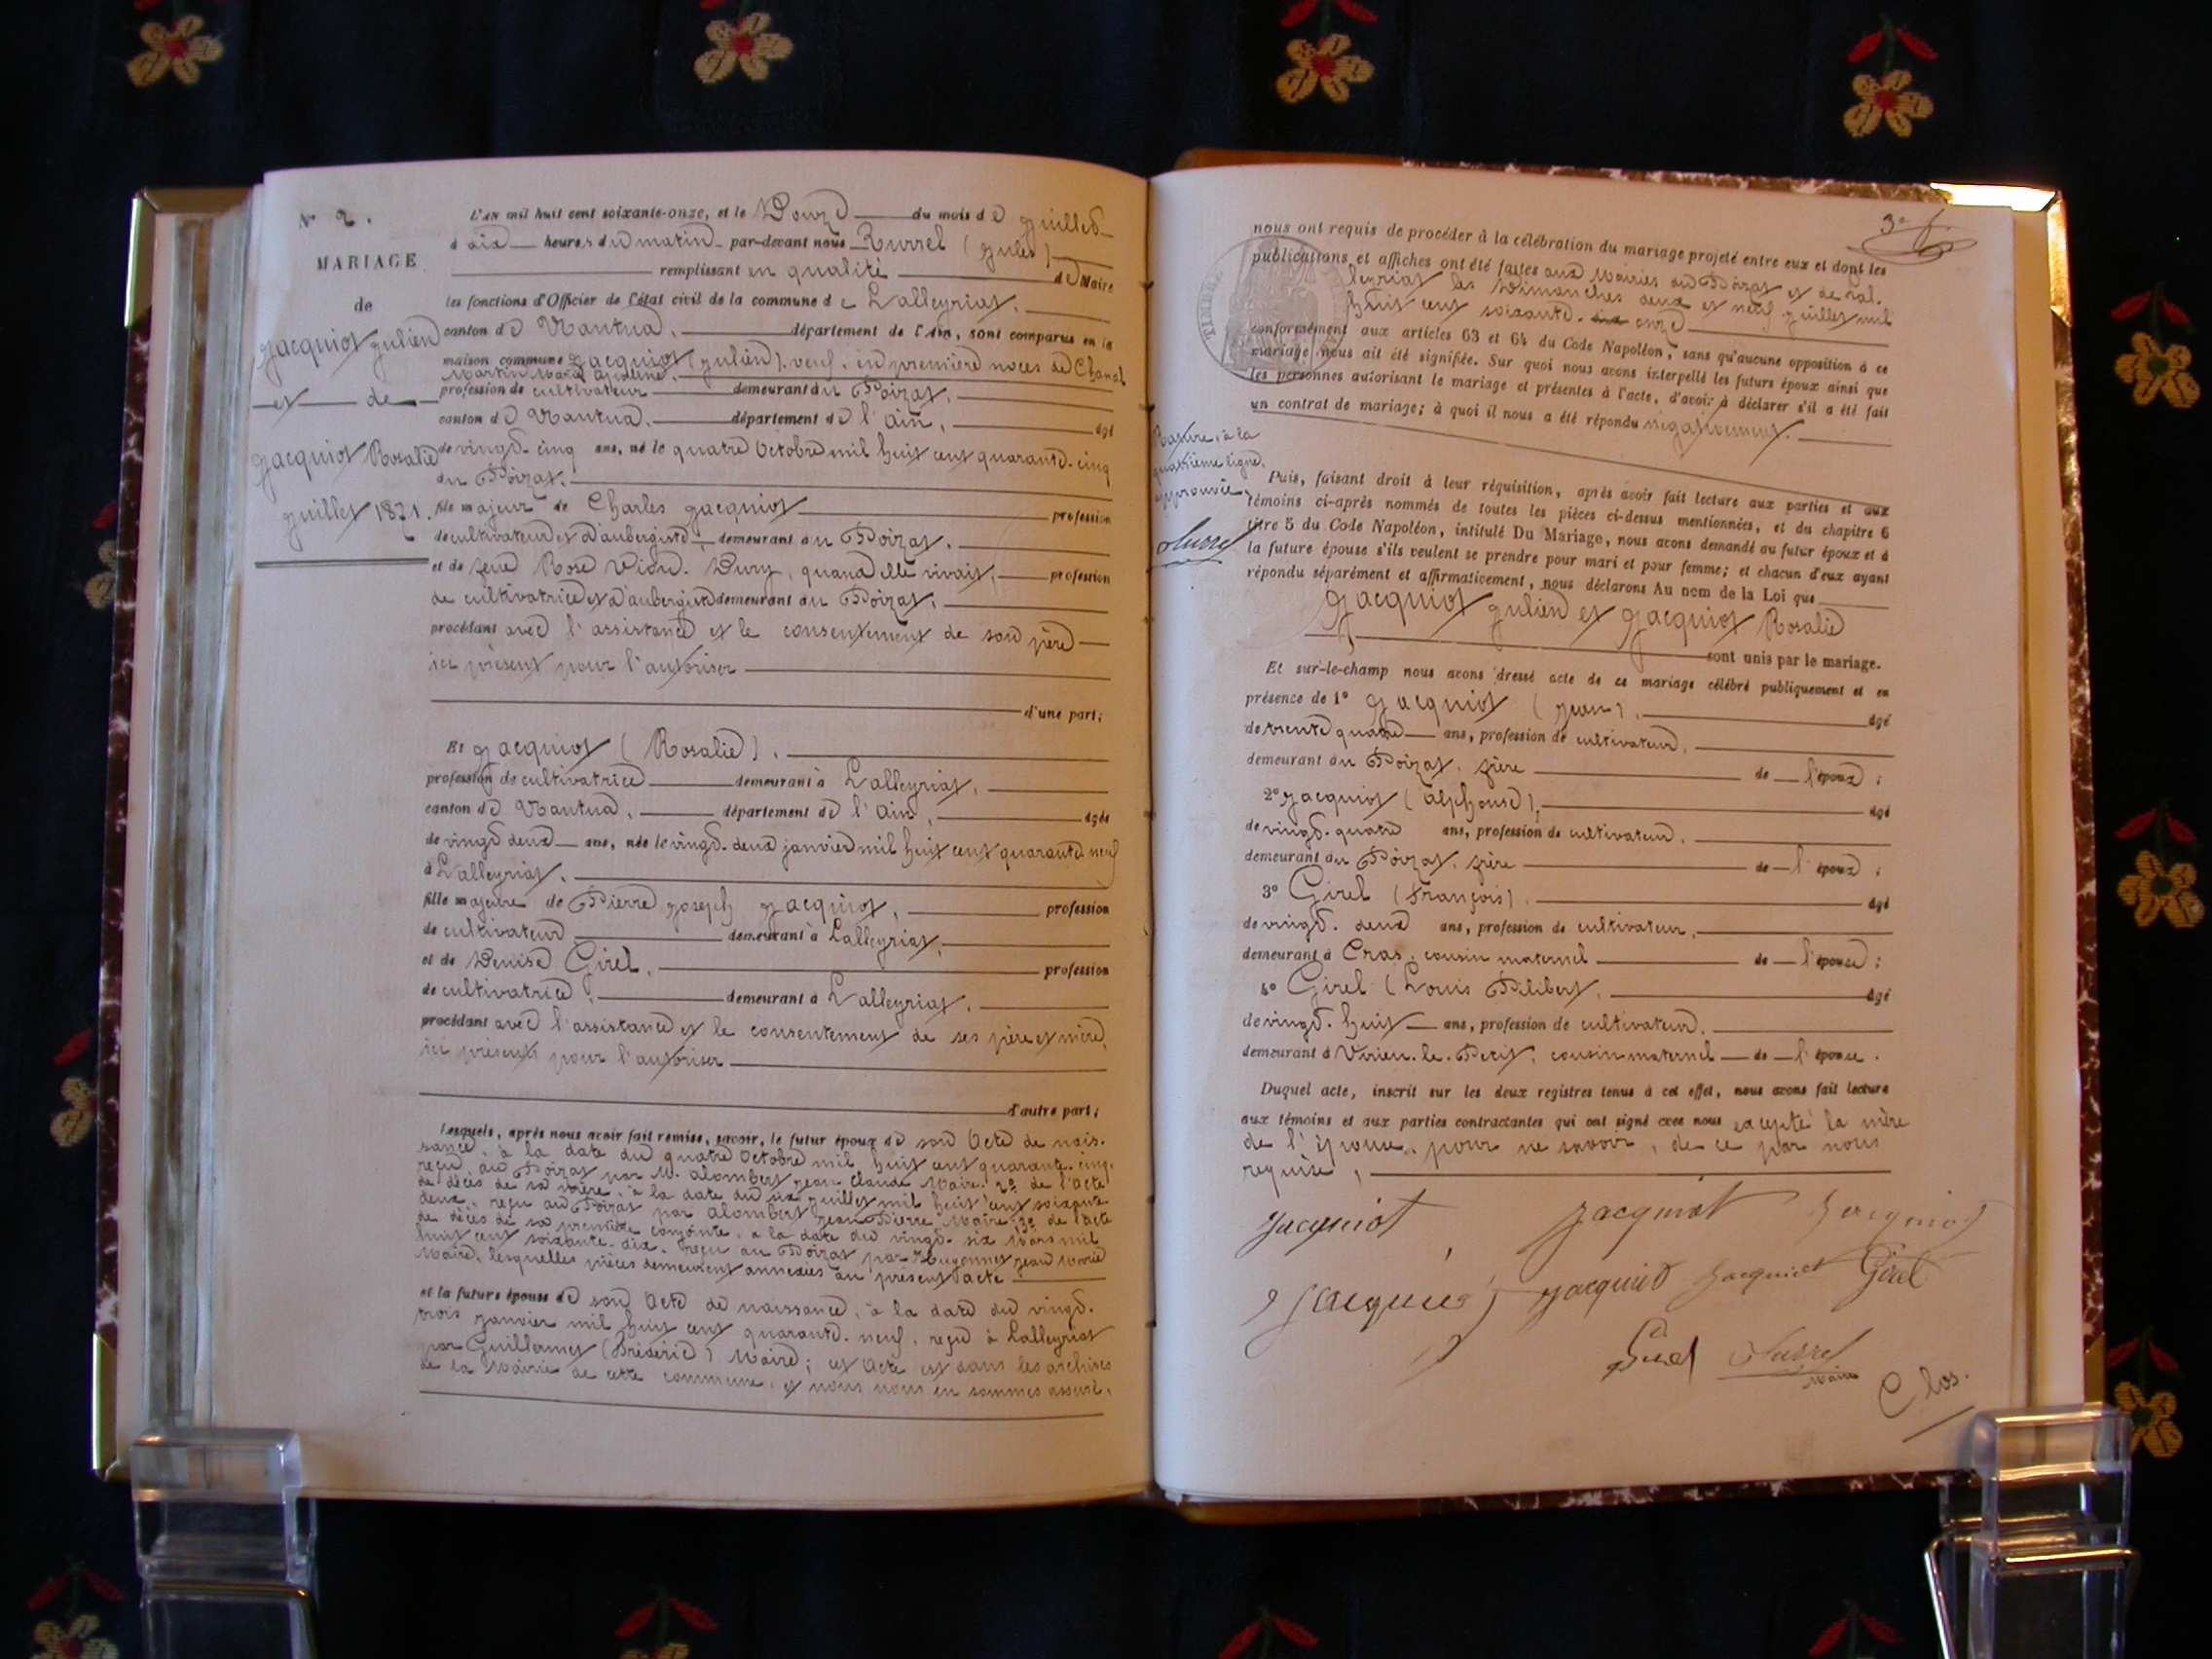 N° 2.
MARIAGE
de
Jacquiot Julien
et de
Jacquiot Rosalie
Juillet 1871.
L'AN mil huit cent soixante-onze, et le Douze du mois de Juillet
à dix heures du matin par-devant nous (Jules)
remplissant en qualité de Maire
les fonctions d'Officier de l'état civil de la commune de Lalleyriat,
canton de Nantua, département de l'Ain, sont comparus en la
maison commune Jacquiot (Julien), veuf, en première noces de Chanal
Martin Marie
profession de cultivateur demeurant au Poizat,
canton de Nantua, département de l'Ain, âgé
de vingt-cinq ans, né le quatre Octobre mil huit cent quarante-cinq
au Poizat,
fils majeur de Charles Jacquiot profession
de cultivateur et d'aubergiste, demeurant au Poizat,
et de feue Rose quand elle vivait, profession
de cultivatrice et d'aubergiste demeurant au Poizat,
procédant avec l'assistance et le consentement de son père
ici présent pour l'autoriser
d'une part;
Et Jacquiot (Rosalie),
profession de cultivatrice demeurant à Lalleyriat,
canton de Nantua, département de l'Ain, âgée
de vingt deux ans, née le vingt-deux janvier mil huit cent quarante neuf
à Lalleyriat,
fille majeure de Pierre Joseph Jacquiot, profession
de cultivateur demeurant à Lalleyriat,
et de Denise Girel, profession
de cultivatrice, demeurant à Lalleyriat,
procédant avec l'assistance et le consentement de ses père et mère,
ici présents pour l'autoriser
d'autre part;
Lesquels, après nous avoir fait remise, savoir, le futur époux de son Acte de nais-
sance, à la date du quatre Octobre mil huit cent quarante-cinq,
reçu au Poizat par M. Alombert Jean Claude Maire. 2° de l'Acte
de décès de sa mère, à la date du six Juillet mil huit cent soixante
deux, reçu au Poizat par Alombert Jean Pierre Maire. 3° de l'acte
de décès de sa première conjointe, à la date du vingt-six Mars mil
huit cent soixante-dix, reçu au Poizat par Jean Marie
Maire, lesquelles pièces demeurent annexées au présent acte
et la future épouse de son Acte de naissance, à la date du vingt-
trois Janvier mil huit cent quarante-neuf, reçu à Lalleyriat
par Guillermet (Fréderic) Maire; cet Acte est dans les archives
de la Mairie de cette commune, et nous nous en sommes assuré.
3e
TIMBRE
nous ont requis de procéder à la célébration du mariage projeté entre eux et dont les
publications et affiches ont été faites aux Mairies du Poizat et de Lal-
leyriat les Dimanches deux et neuf Juillet mil
huit cent soixante- onze
conformément aux articles 63 et 64 du Code Napoléon, sans qu'aucune opposition à ce
mariage nous ait été signifiée. Sur quoi nous avons interpellé les futurs époux ainsi que
les personnes autorisant le mariage et présentes à l'acte, d'avoir à déclarer s'il a été fait
un contrat de mariage; à quoi il nous a été répondu négativement.
Rature, à la
quatrième ligne,
approuvée,
Puis, faisant droit à leur réquisition, après avoir fait lecture aux parties et aux
témoins ci-après nommés de toutes les pièces ci-dessus mentionnées, et du chapitre 6
titre 5 du Code Napoléon, intitulé Du Mariage, nous avons demandé au futur époux et à
la future épouse s'ils veulent se prendre pour mari et pour femme; et chacun d'eux ayant
répondu séparément et affirmativement, nous déclarons Au nom de la Loi que
Jacquiot Julien et Jacquiot Rosalie
sont unis par le mariage.
Et sur-le-champ nous avons dressé acte de ce mariage célébré publiquement et en
présence de 1° Jacquiot (Jean), âgé
de trente quatre ans, profession de cultivateur,
demeurant au Poizat, frère de l'époux;
2° Jacquiot (Alphonse), âgé
de vingt-quatre ans, profession de cultivateur,
demeurant au Poizat, frère de l'époux;
3° Girel (François), âgé
de vingt-deux ans, profession de cultivateur,
demeurant à Cras, cousin maternel de l'épouse;
4° Girel (Louis Pilibert, âgé
de vingt-huit ans, profession de cultivateur,
demeurant à Virieu-le-Petit, cousin maternel de l'épouse.
Duquel acte, inscrit sur les deux registres tenus à cet effet, nous avons fait lecture
aux témoins et aux parties contractantes qui ont signé avec nous excepté la mère
de l'épouse, pour ne savoir, de ce par nous
requise,
Jacquiot Jacquiot Jacquiot
Jacquiot Jacquiot Jacquiot Girel
Girel
Maire
Clos.